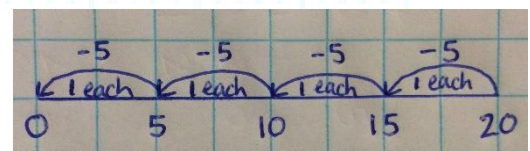 -5 -5 -5 -5
1 each 1 each 1 each 1 each
0 5 10 15 20